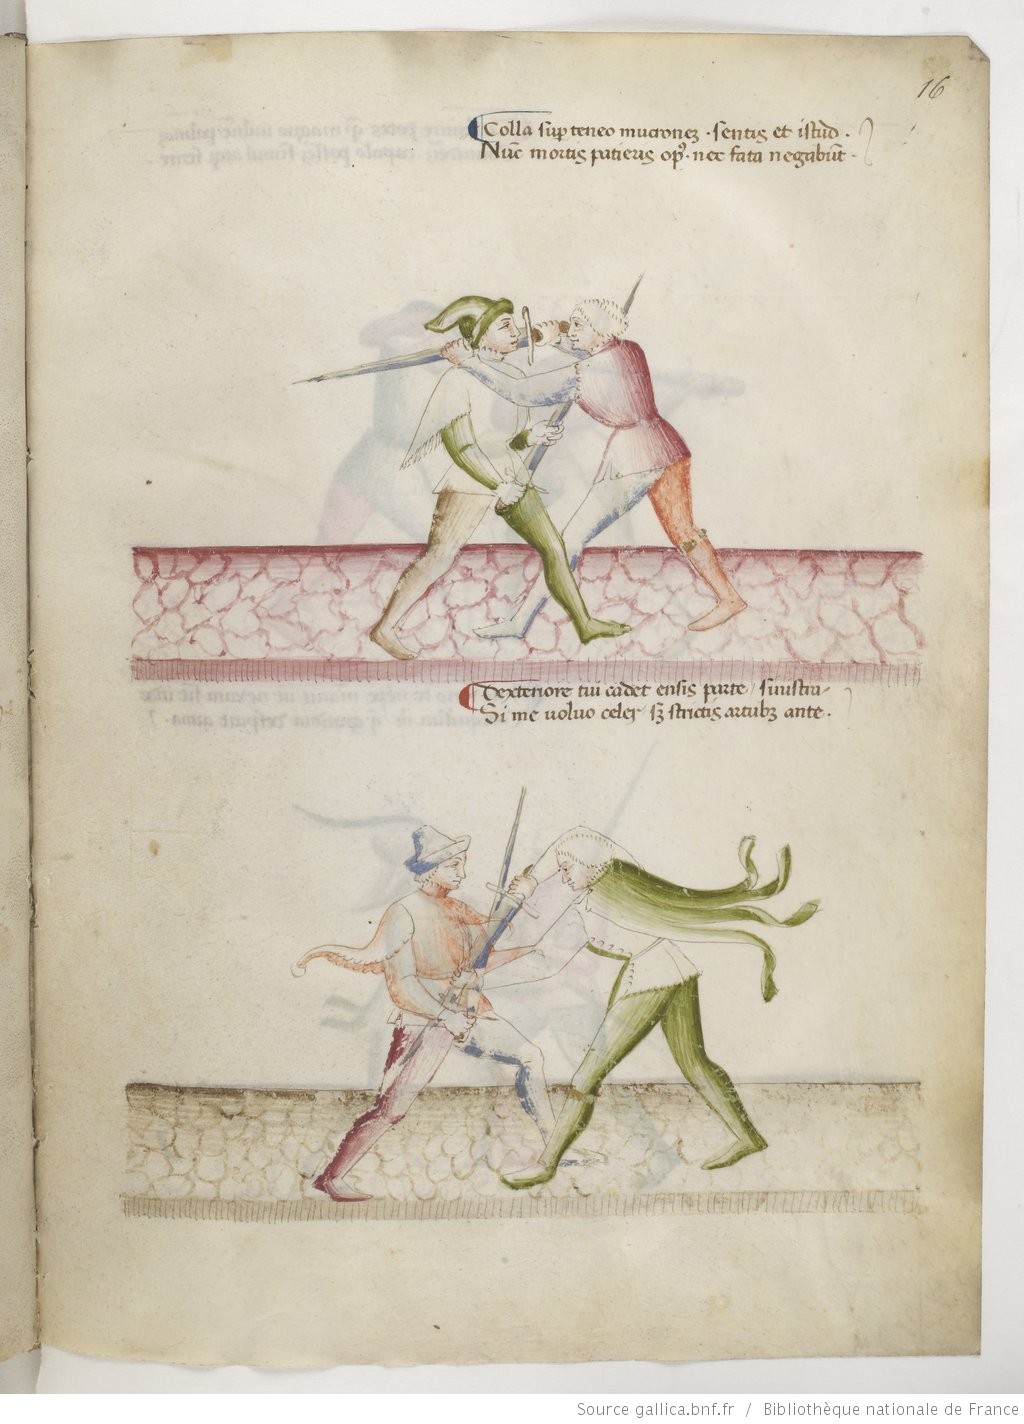 16
Colla sup teneo mucroneȝ · sentis et istud ·
Nūc mortis patieris opꝰ · nec fata negabūt ·
Dexteriore tui cadet ensis parte / sinistra
Si me voluo celer · sȝ strictis artubȝ ante ·
Source gallica.bnf.fr / Bibliothèque nationale de France